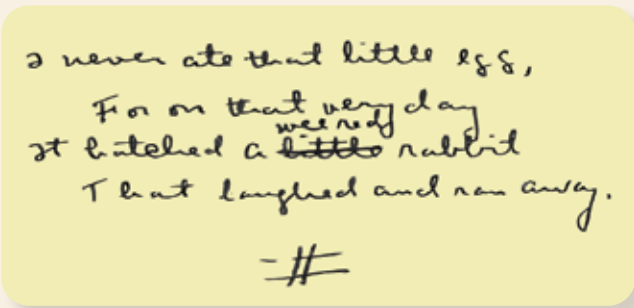 I never ate that little egg,
For on that very day
It hatched a wee red little rabbit
That laughed and ran away.